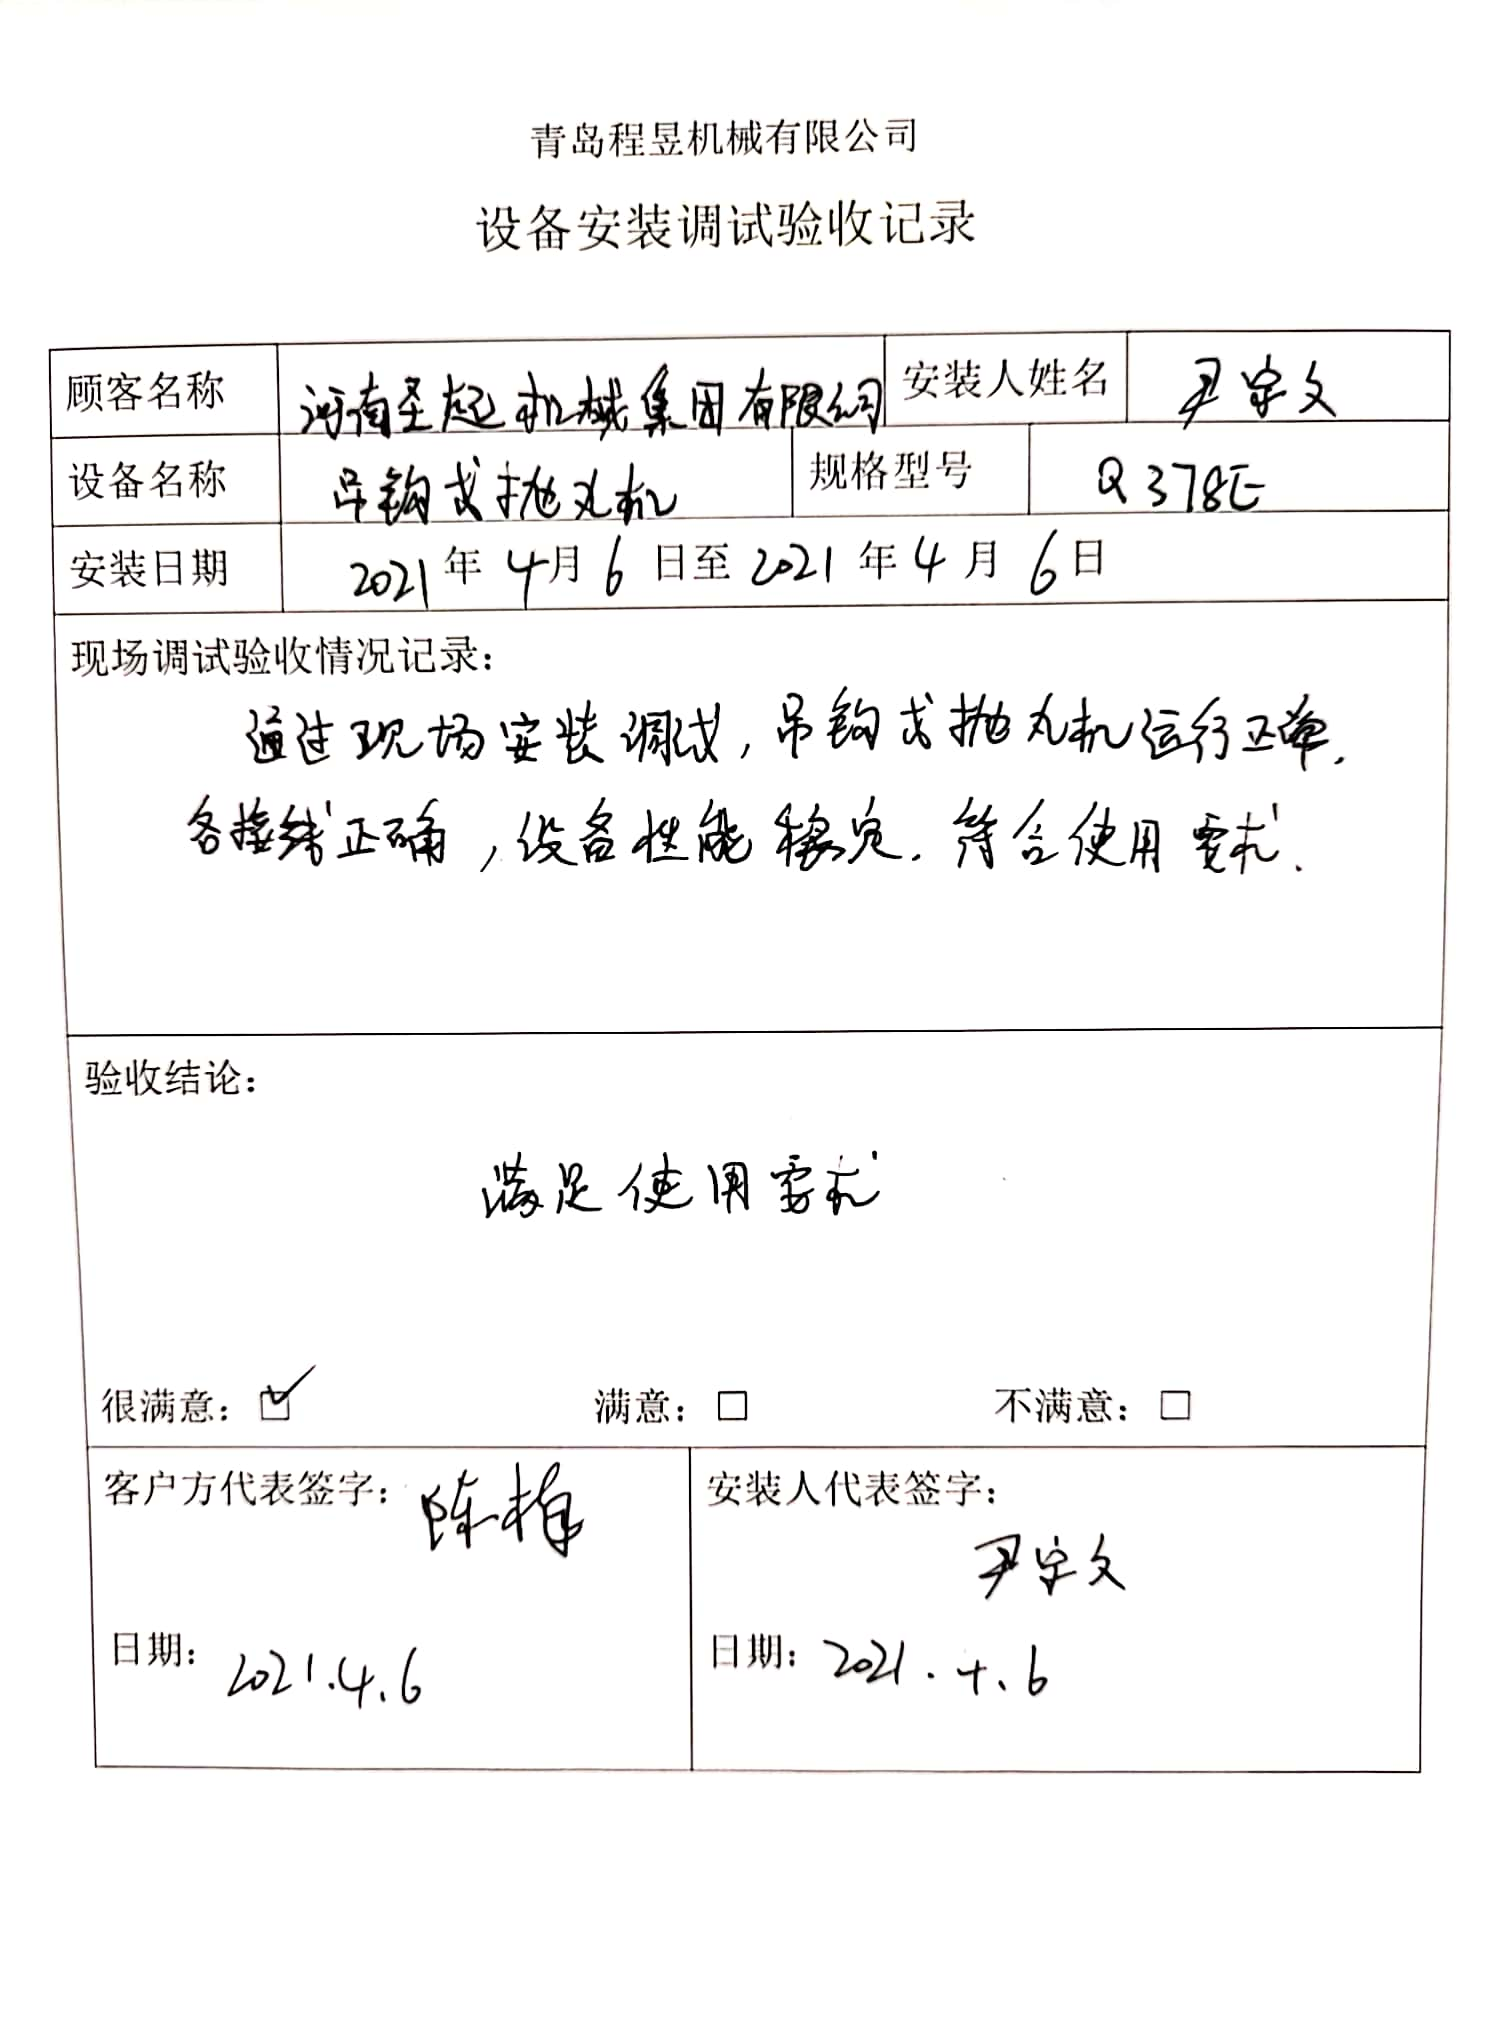 青岛程昱机械有限公司
设备安装调试验收记录
顾客名称 河南圣起机械集团有限公司 安装人姓名 尹宗文
设备名称 吊钩式抛丸机 规格型号 Q378E
安装日期 2021年4月6日至2021年4月6日
现场调试验收情况记录：
通过现场安装调试，吊钩式抛丸机运行正常.
各接线正确，设备性能稳定.符合使用需求.
验收结论：
满足使用需求
很满意：☑ 满意：□ 不满意：□
客户方代表签字：陈 安装人代表签字：
尹宗文
日期：2021.4.6 日期：2021.4.6